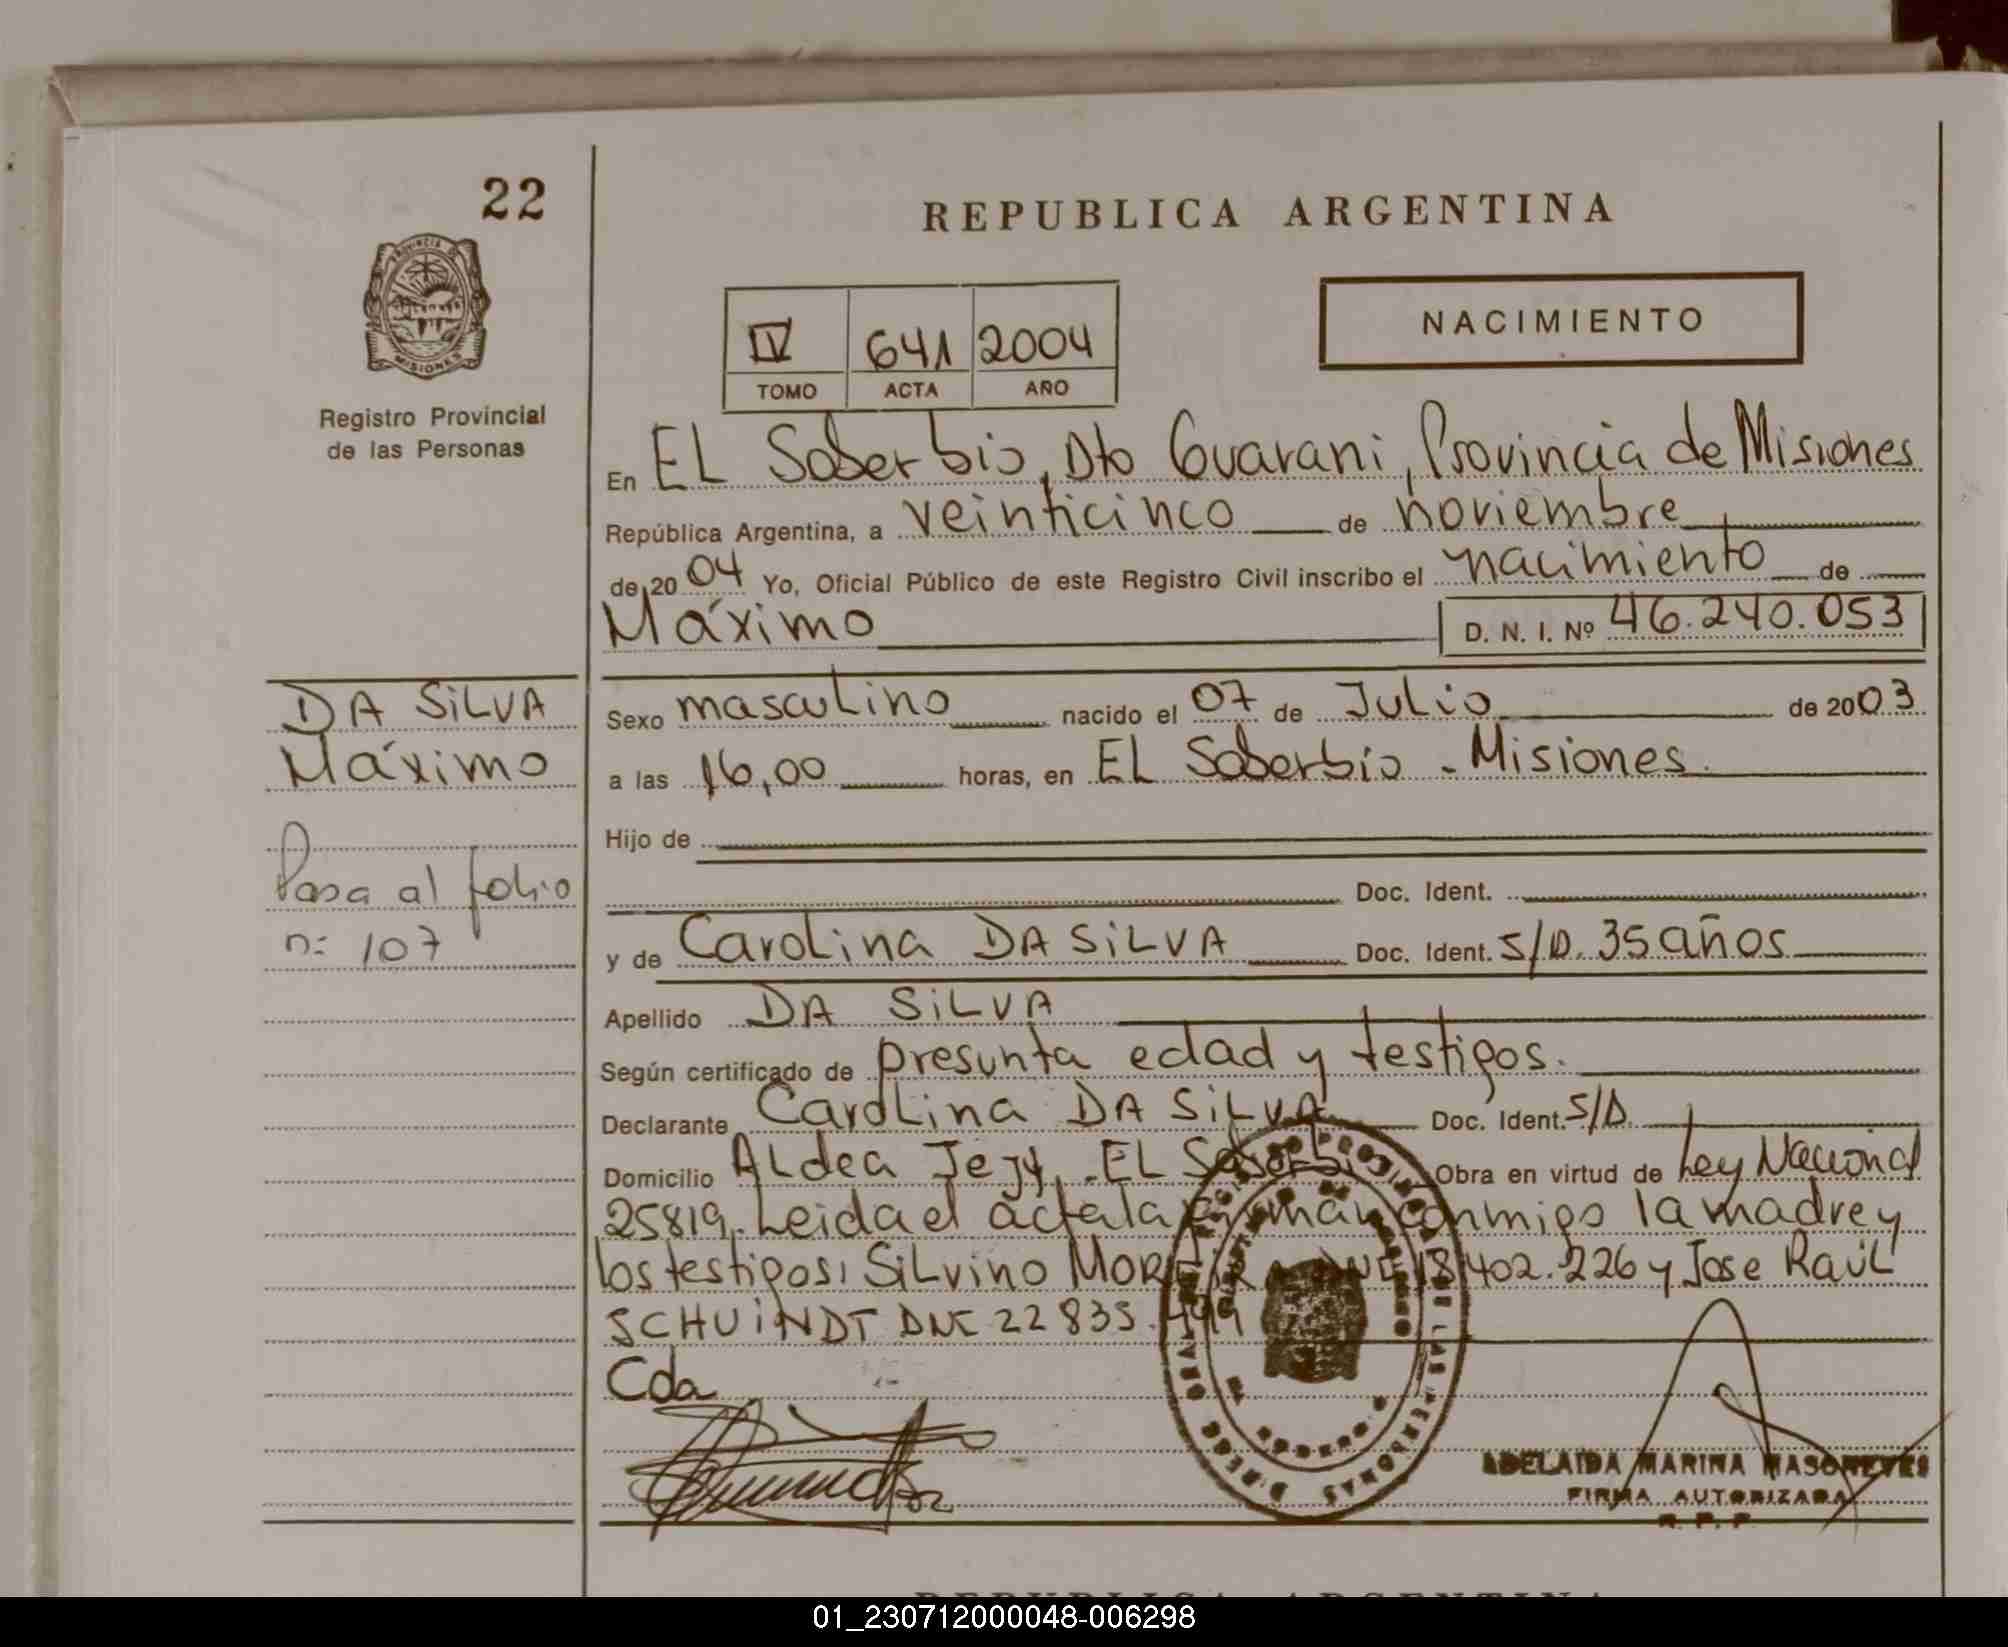 22
REPUBLICA ARGENTINA
PROVINCIA DE
MISIONES
Registro Provincial
de las Personas
IV 641 2004
TOMO ACTA AÑO
NACIMIENTO
En EL Soberbio, Dto Guarani, Provincia de Misiones
República Argentina, a veinticinco de noviembre
de 2004 Yo, Oficial Público de este Registro Civil inscribo el nacimiento de
Máximo D. N. I. Nº 46.240.053
DA SiLVA
Máximo
Pasa al folio
nº 107
Sexo masculino nacido el 07 de Julio de 2003
a las 16,00 horas, en EL Soberbio - Misiones.
Hijo de
Doc. Ident.
y de Carolina DA SiLVA Doc. Ident. S/D. 35 años
Apellido DA SiLVA
Según certificado de presunta edad y testigos.
Declarante Carolina DA SiLVA Doc. Ident. S/D.
Domicilio ALdea Jejy, EL Soberbio Obra en virtud de Ley Nacional
25819. Leida el acta la firman conmigo la madre y
los testigos: SiLvino MOREIRA DNI 18.402.226 y Jose Raúl
SCHUiNDT DNI 22 835.449
Cda
ADELAIDA MARINA
FIRMA AUTORIZADA
R. P. P.
REPUBLICA ARGENTINA
01_230712000048-006298